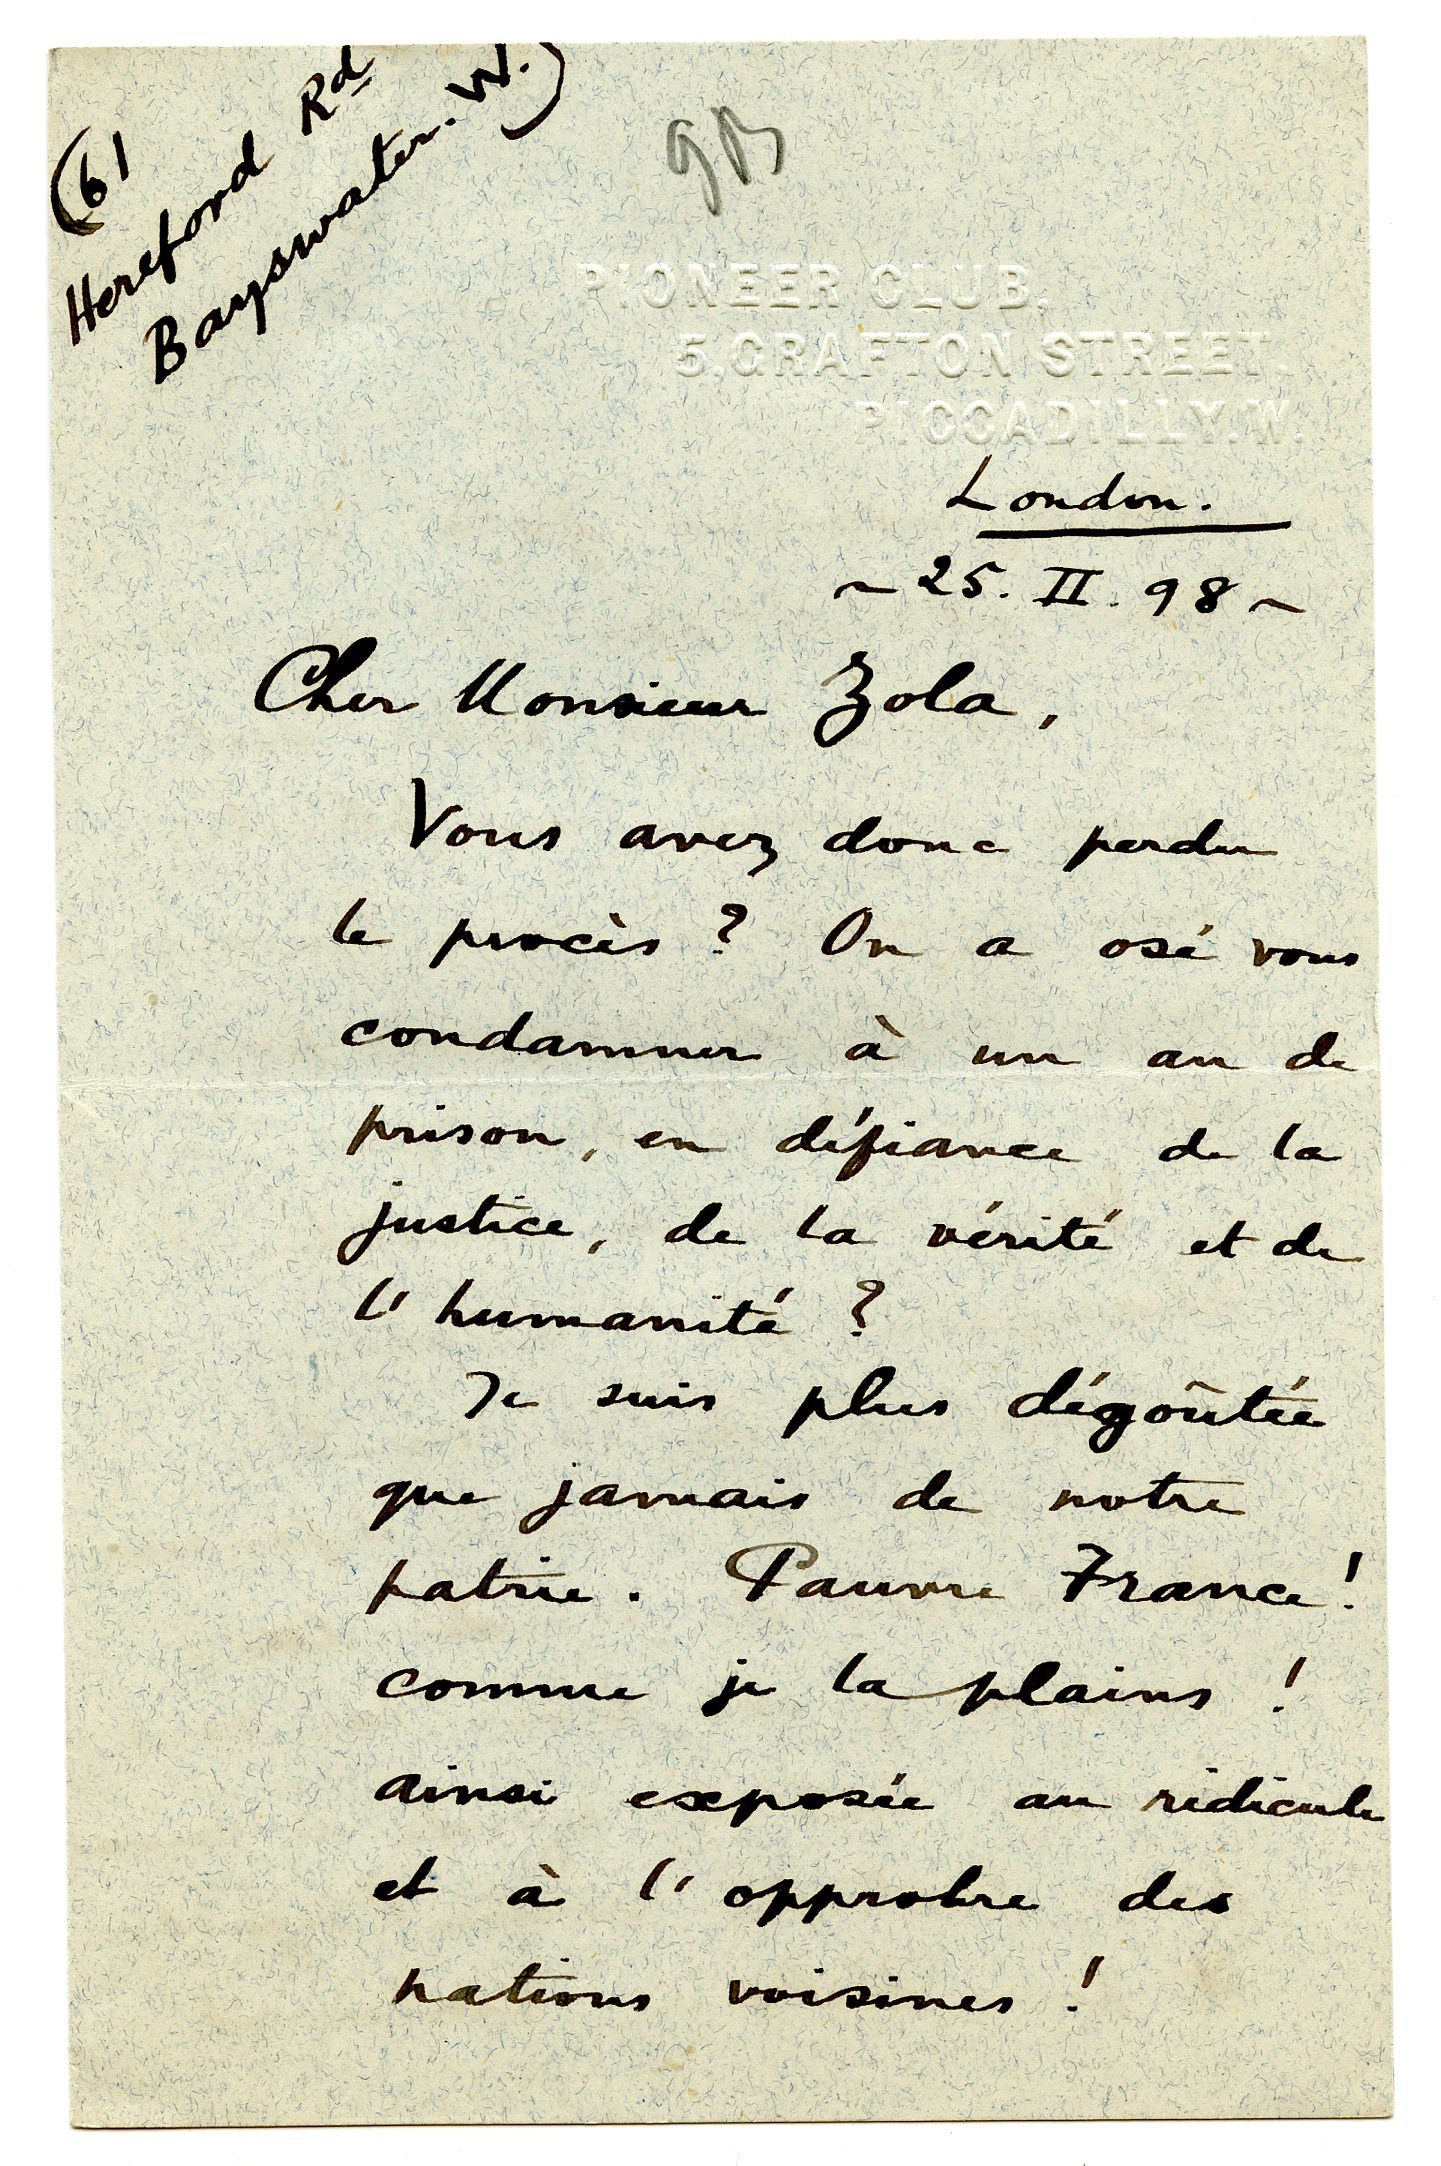 (61
Hereford Rd
Bayswater. W.)
GB
PIONEER CLUB,
5, GRAFTON STREET,
PICCADILLY. W.
London.
~ 25. II. 98 ~
Cher Monsieur Zola,
Vous avez donc perdu
le procès ? On a osé vous
condamner à un an de
prison, en défiance de la
justice, de la vérité et de
l'humanité ?
Je suis plus dégoûtée
que jamais de notre
patrie. Pauvre France !
comme je la plains !
ainsi exposée au ridicule
et à l'opprobre des
nations voisines !